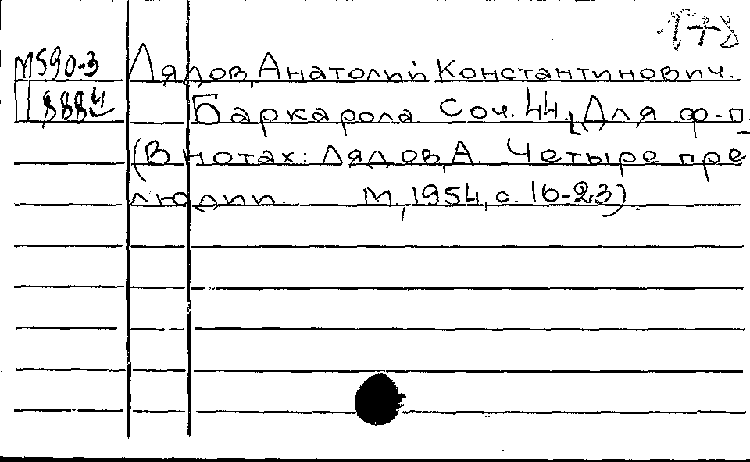 М590-3 Лядов, Анатолий Константинович.
8884 Баркарола Соч. 44, Для ф-п
(В нотах: Лядов, А. Четыре пре
людии М., 1954, с. 16-23)